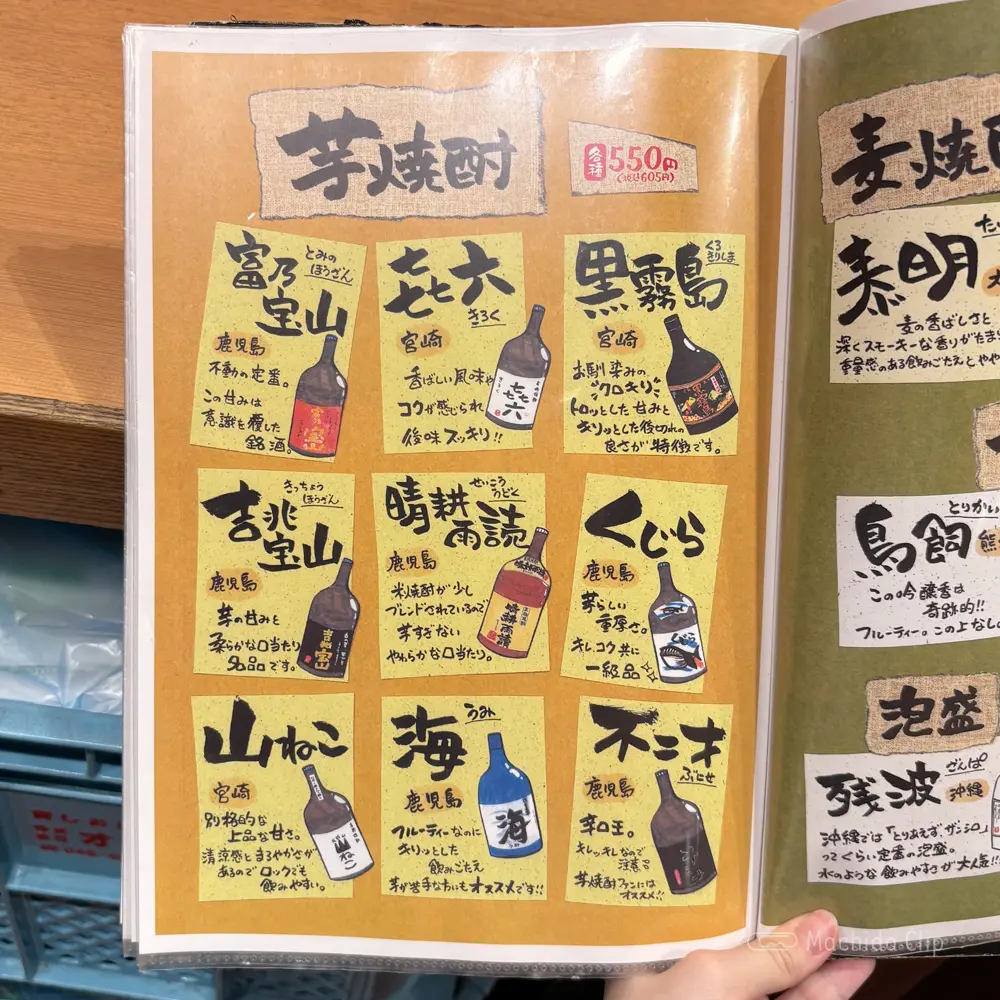 芋焼酎
各種
550円
(税込605円)
富乃
宝山
とみの
ほうざん
鹿児島
不動の定番。
この甘みは
意識を覆した
銘酒。
㐂六
きろく
宮崎
香ばしい風味や
コクが感じられ
後味スッキリ!!
黒霧島
くろ
きりしま
宮崎
お馴染みの
"クロキリ"
トロッとした甘みと
キリッとした後切れの
良さが特徴です。
吉兆
宝山
きっちょう
ほうざん
鹿児島
芋の甘みと
柔らかな口当たり
名品です。
晴耕
雨読
せいこう
うどく
鹿児島
米焼酎が少し
ブレンドされているので
芋すぎない
やわらかな口当たり。
くじら
鹿児島
芋らしい
重厚さ。
キレコク共に
一級品☆
山ねこ
宮崎
別格的な
上品な甘さ。
清涼感とまろやかさが
あるのでロックでも
飲みやすい。
海
うみ
鹿児島
フルーティーなのに
キリッとした
飲みごたえ
芋が苦手な方にもオススメです!!
不二才
ぶにせ
鹿児島
辛口王。
キレッキレなので
注意!!
芋焼酎ファンには
オススメ!!
麦焼
明
麦の香ばしさと
深くスモーキーな香りがたま
重量感のある飲みごたえとやや
鳥飼
とりかい
熊
この吟醸香は
奇跡的!!
フルーティー。この上なし
泡盛
残波
ざんぱ
沖縄
沖縄では「とりあえずザンシロ」
ってくらい定番の泡盛。
水のような飲みやすさが大人気!!
Machida Clip